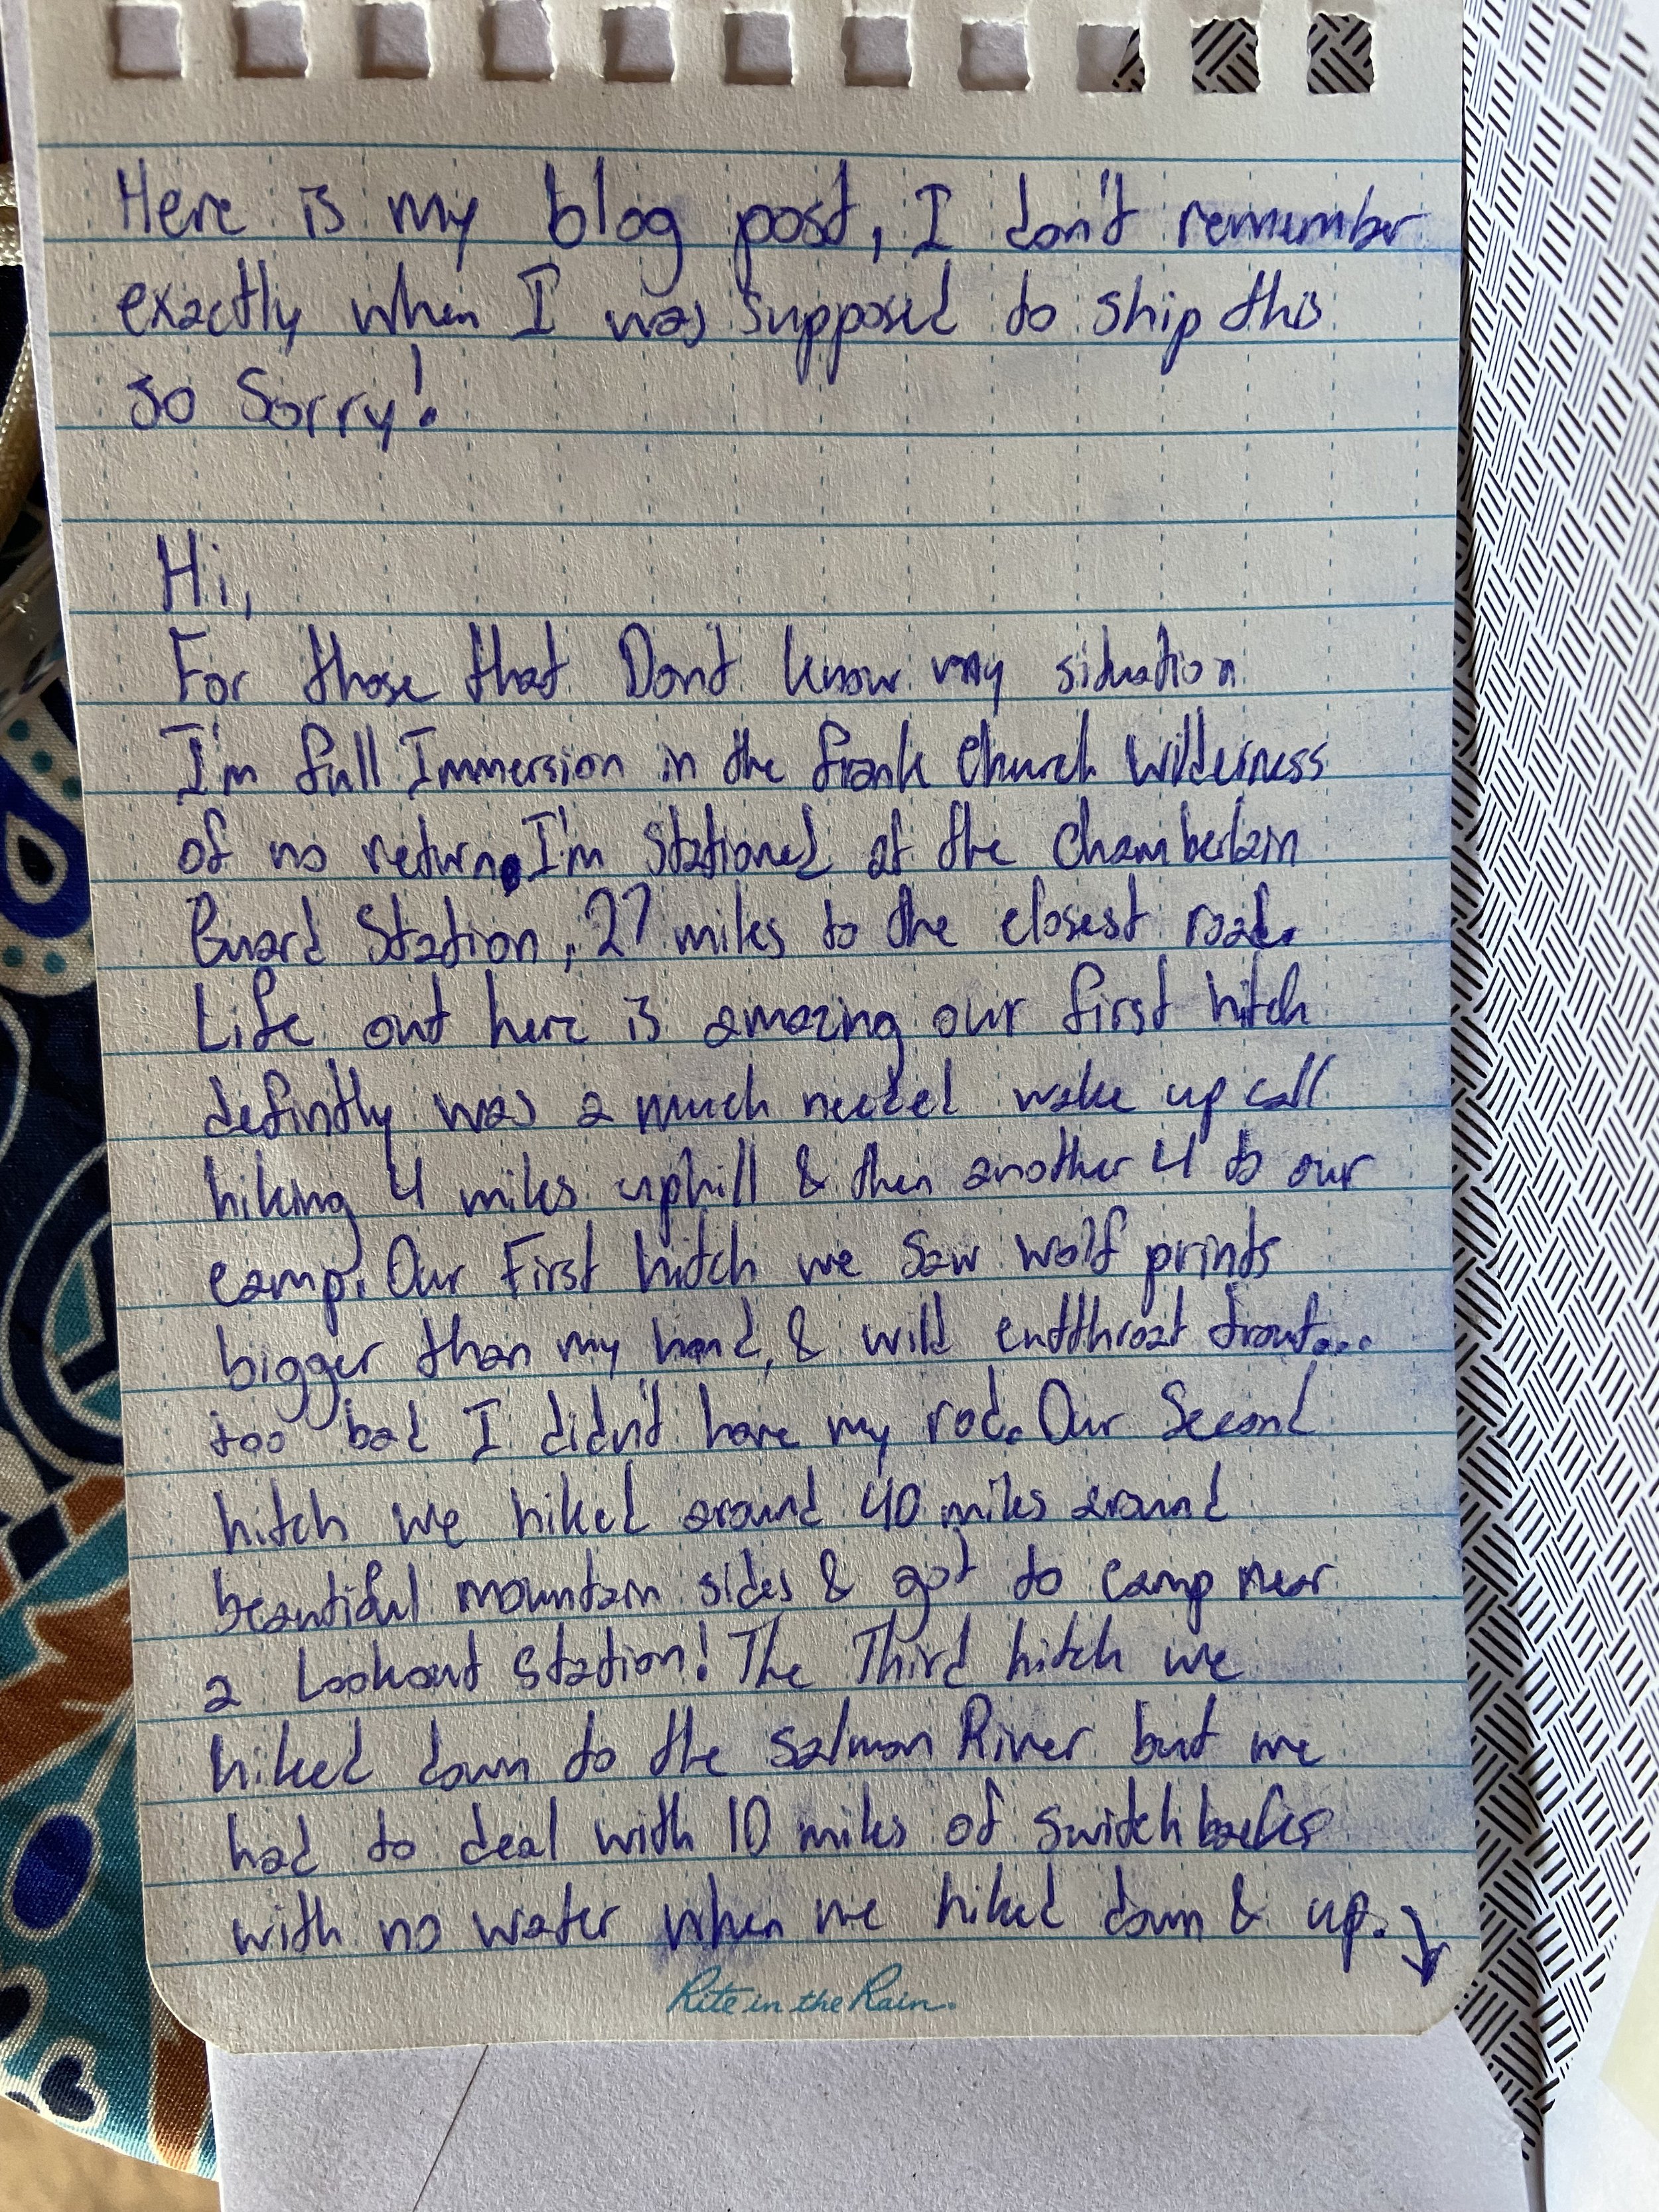 Here is my blog post, I don't remember
exactly when I was supposed to ship this
so Sorry!
Hi,
For those that Don't know my situation
I'm full Immersion in the frank Church Wilderness
of no return. I'm stationed at the Chamberlain
Guard Station, 27 miles to the closest road.
Life out here is amazing our first hitch
defintly was a much needed wake up call
hiking 4 miles uphill & then another 4 to our
camp. Our First hitch we saw wolf prints
bigger than my hand, & wild cutthroat trout...
too bad I didn't have my rod. Our Second
hitch we hiked around 40 miles around
beautiful mountain sides & got to camp near
a Lookout station! The Third hitch we
hiked down to the salmon River but we
had to deal with 10 miles of switchbacks
with no water when we hiked down & up. ↘
Rite in the Rain.